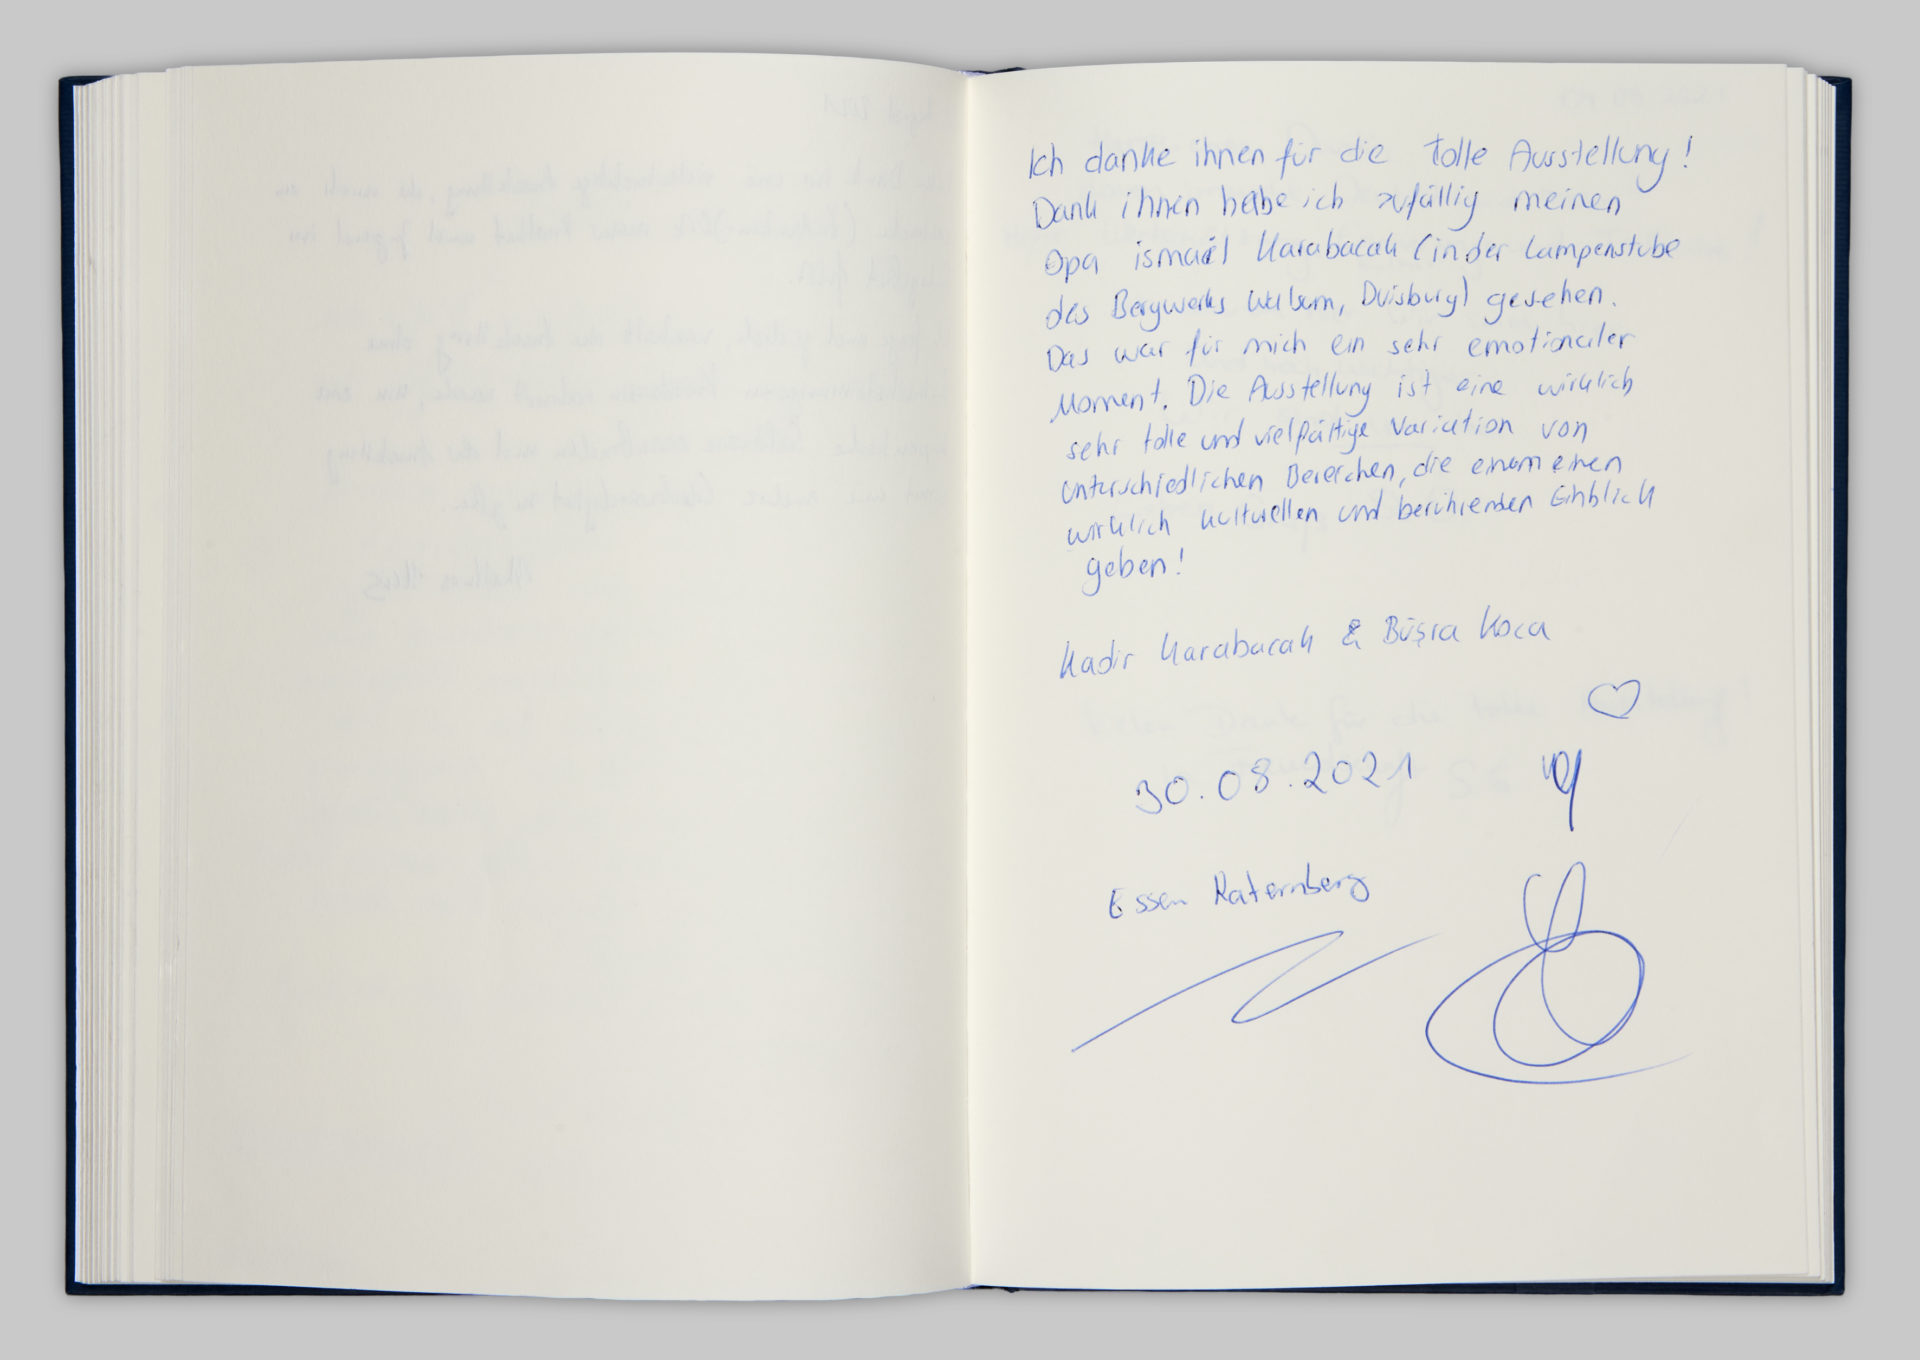 Ich danke ihnen für die tolle Ausstellung!
Dank ihnen habe ich zufällig meinen
Opa ismail Karabacak (in der Lampenstube
des Bergwerks Walsum, Duisburg) gesehen.
Das war für mich ein sehr emotionaler
Moment. Die Ausstellung ist eine wirklich
sehr tolle und vielfältige Variation von
unterschiedlichen Bereichen, die einem einen
wirklich kulturellen und berührenden Einblick
geben!
Kadir Karabacak & Büşra Koca
30.08.2021
Essen Katernberg